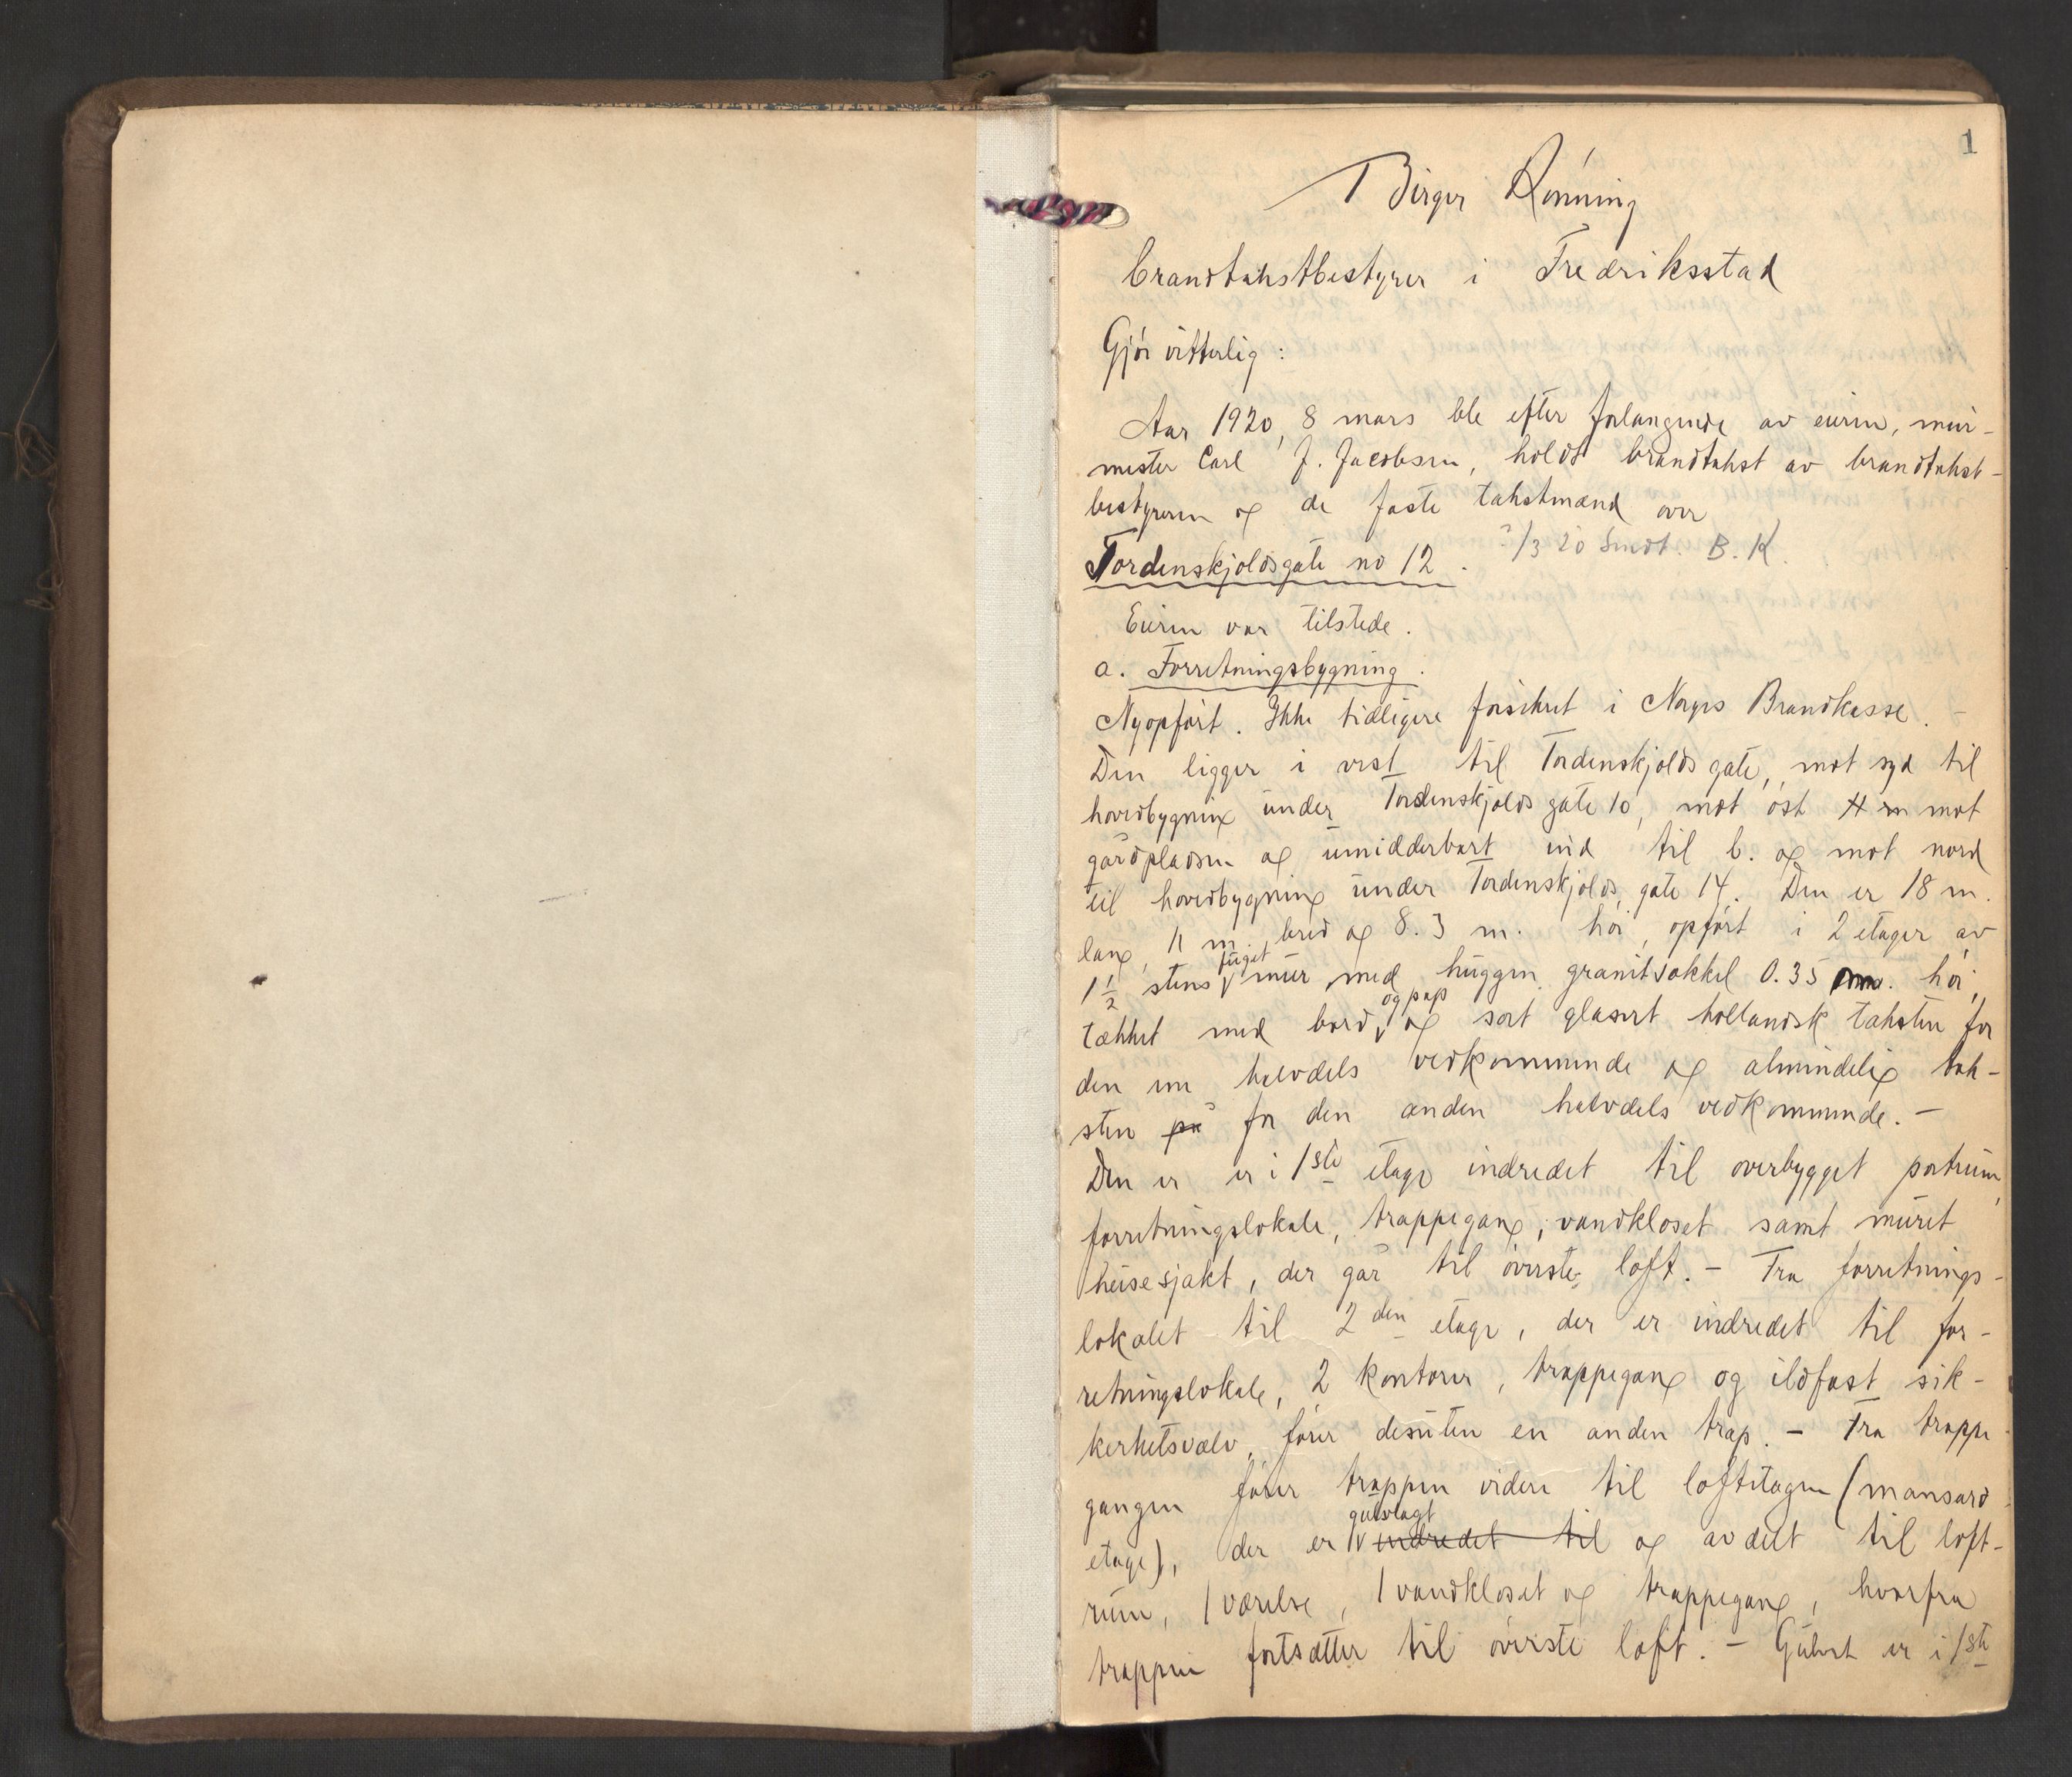 1
Birger Rönning
brandtakstbestyrer i Fredriksstad
Gjör vitterlig :
Aar 1920, 8 mars ble efter forlangende av eieren, mur-
mester Carl J. Jacobsen, holdt brandtakst av brandtakst-
bestyreren og de faste takstmænd over
Tordenskjoldsgate no 12. /3 20 Sendt. B. K.
Eieren var tilstede.
a. Forretningsbygning.
Nyopfört. Ikke tidligere forsikret i Norges Brandkasse. –
Den ligger i vest til Tordenskjolds gate, mot syd til
hovedbygning under Tordenskjolds gate 10, mot öst mot
gårdpladsen og umidderbart ind til b. og mot nord
til hovedbygning under Tordenskjolds gate 14. Den er 18 m.
lang, 11 m. bred og 8.3 m. höi, opfört i 2 etager av
1 1/2 stens fuget mur med huggen granitsokkel 0.35 m. höi,
tækket med bord, og pap og sort glasert hollandsk taksten for
den ene halvdels vedkommende og almindelig tak-
sten på for den anden halvdels vedkommende. –
Den er er i 1ste etage indredet til overbygget portrum,
forretningslokale, trappegang, vandkloset samt muret
heisesjakt, der går til överste loft. – Fra forretnings-
lokalet til 2den etage, der er indredet til for-
retningslokale, 2 kontorer, trappegang og ildfast sik-
kerhetsvælv, förer desuten en anden trap. – Fra trappe-
gangen förer trappen videre til loftetagen (mansard-
etage), der er gulvlagt indredet til og avdelt til loft-
rum, 1 værelse, 1 vandkloset og trappegang, hvorfra
trappen fortsætter til överste loft. – Gulvet er i 1ste